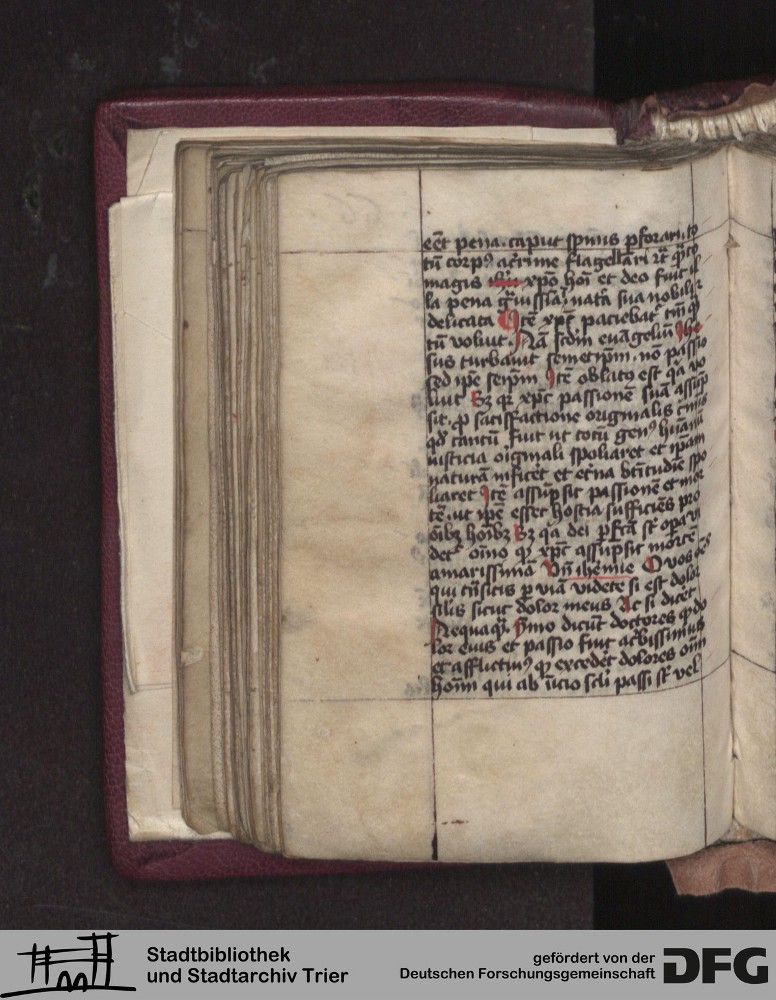 eēt pena. caput spinis ꝑforari. to
tū corpꝰ acrime flagellari
magis xp̄o hoī et deo fuit il
la pena
delicata Itē xp̄c paciebat
tū voluit. Nā scdm evāgeliū Ihe
sus turbavit semetipm. nō passio
sed ipē seipm Itē oblatꝰ est qa vo
luit Sz qr xp̄c passionē suā assūp
sit. ꝓ satisfactione originalis
qd tantū fuit ut totū genꝰ humā
iusticia originali spoliaret et ipam
naturā inficet et etna btitudīe spo
liaret Itē assūpsit passionē et mor
tē. ut ipē esset hostia sufficiēs pro
oībꝫ hoībꝫ Sz qa dei ꝑfcā st opa vi
det oīno qꝫ xp̄c assūpsit mortē
amarissimā Vn̄ iheremie O vos oēs
qui trāsitis ꝑ viā videte si est dolor
silis sicut dolor meus Ac si dicet
Nequaqꝫ. Immo dicūt doctores qꝫ do
lor eius et passio fuit acbissimus
et afflictivꝰ qꝫ excedet dolores oīm
hoīm qui ab inicio scli passi st vel
Stadtbibliothek
und Stadtarchiv Trier
gefördert von der
Deutschen Forschungsgemeinschaft
DFG